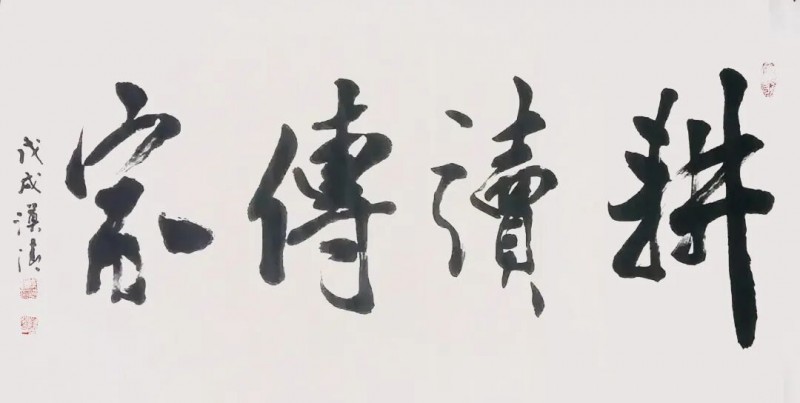 耕讀傳家
戊戌漢清